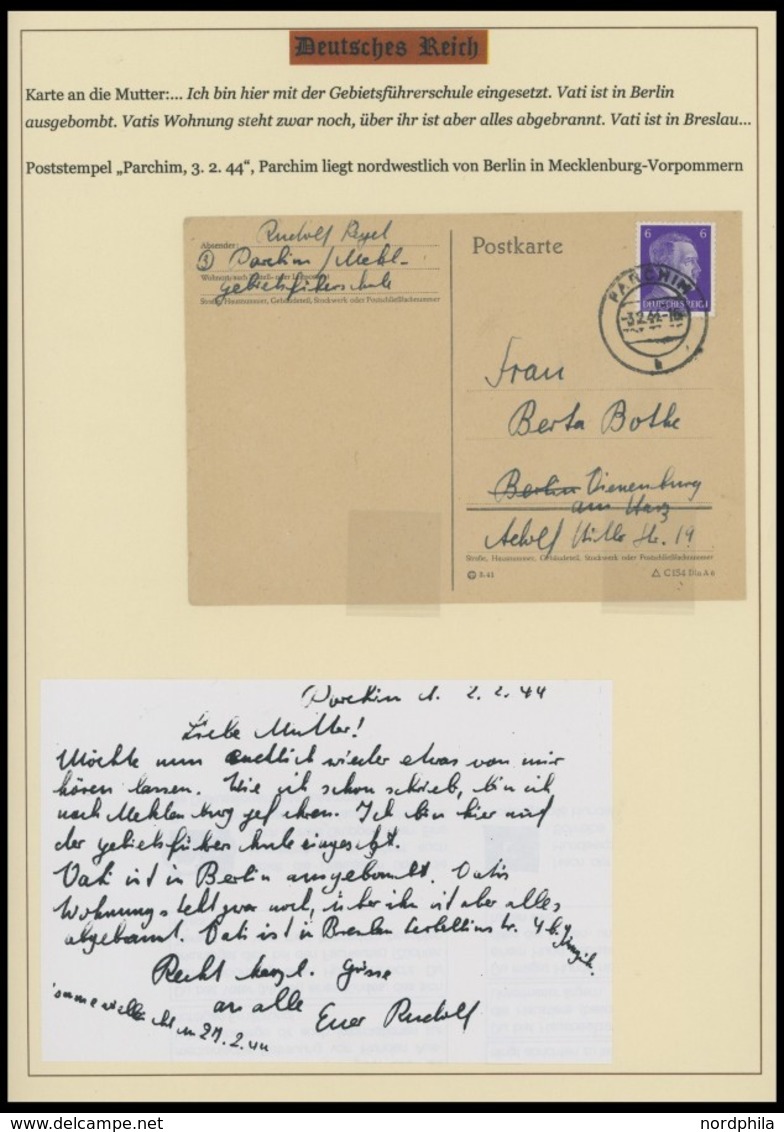 Deutsches Reich
Karte an die Mutter:... Ich bin hier mit der Gebietsführerschule eingesetzt. Vati ist in Berlin
ausgebombt. Vatis Wohnung steht zwar noch, über ihr ist aber alles abgebrannt. Vati ist in Breslau...
Poststempel „Parchim, 3. 2. 44“, Parchim liegt nordwestlich von Berlin in Mecklenburg-Vorpommern
Rudolf
Absender:
Parchim / Meckl.
Gebietsführerschule
Straße, Hausnummer, Gebäudeteil, Stockwerk oder Postschließfachnummer
Postkarte
6 6
DEUTSCHES REICH
PARCHIM
-3.2.44
b
Frau
Berta Bothe
Berlin Vienenburg
am Harz
Adolf Hitler Str. 19
Straße, Hausnummer, Gebäudeteil, Stockwerk oder Postschließfachnummer
C 154 Din A 6
Parchim d. 2. 2. 44
Liebe Mutter!
Möchte nun endlich wieder etwas von mir
hören lassen. Wie ich schon schrieb, bin ich
nach Mecklenburg gefahren. Ich bin hier auf
der Gebietsführerschule eingesetzt.
Vati ist in Berlin ausgebombt. Vatis
Wohnung steht zwar noch, über ihr ist aber alles
abgebrannt. Vati ist in Breslau
Recht herzl. Grüsse
an alle
Euer Rudolf
nordphila